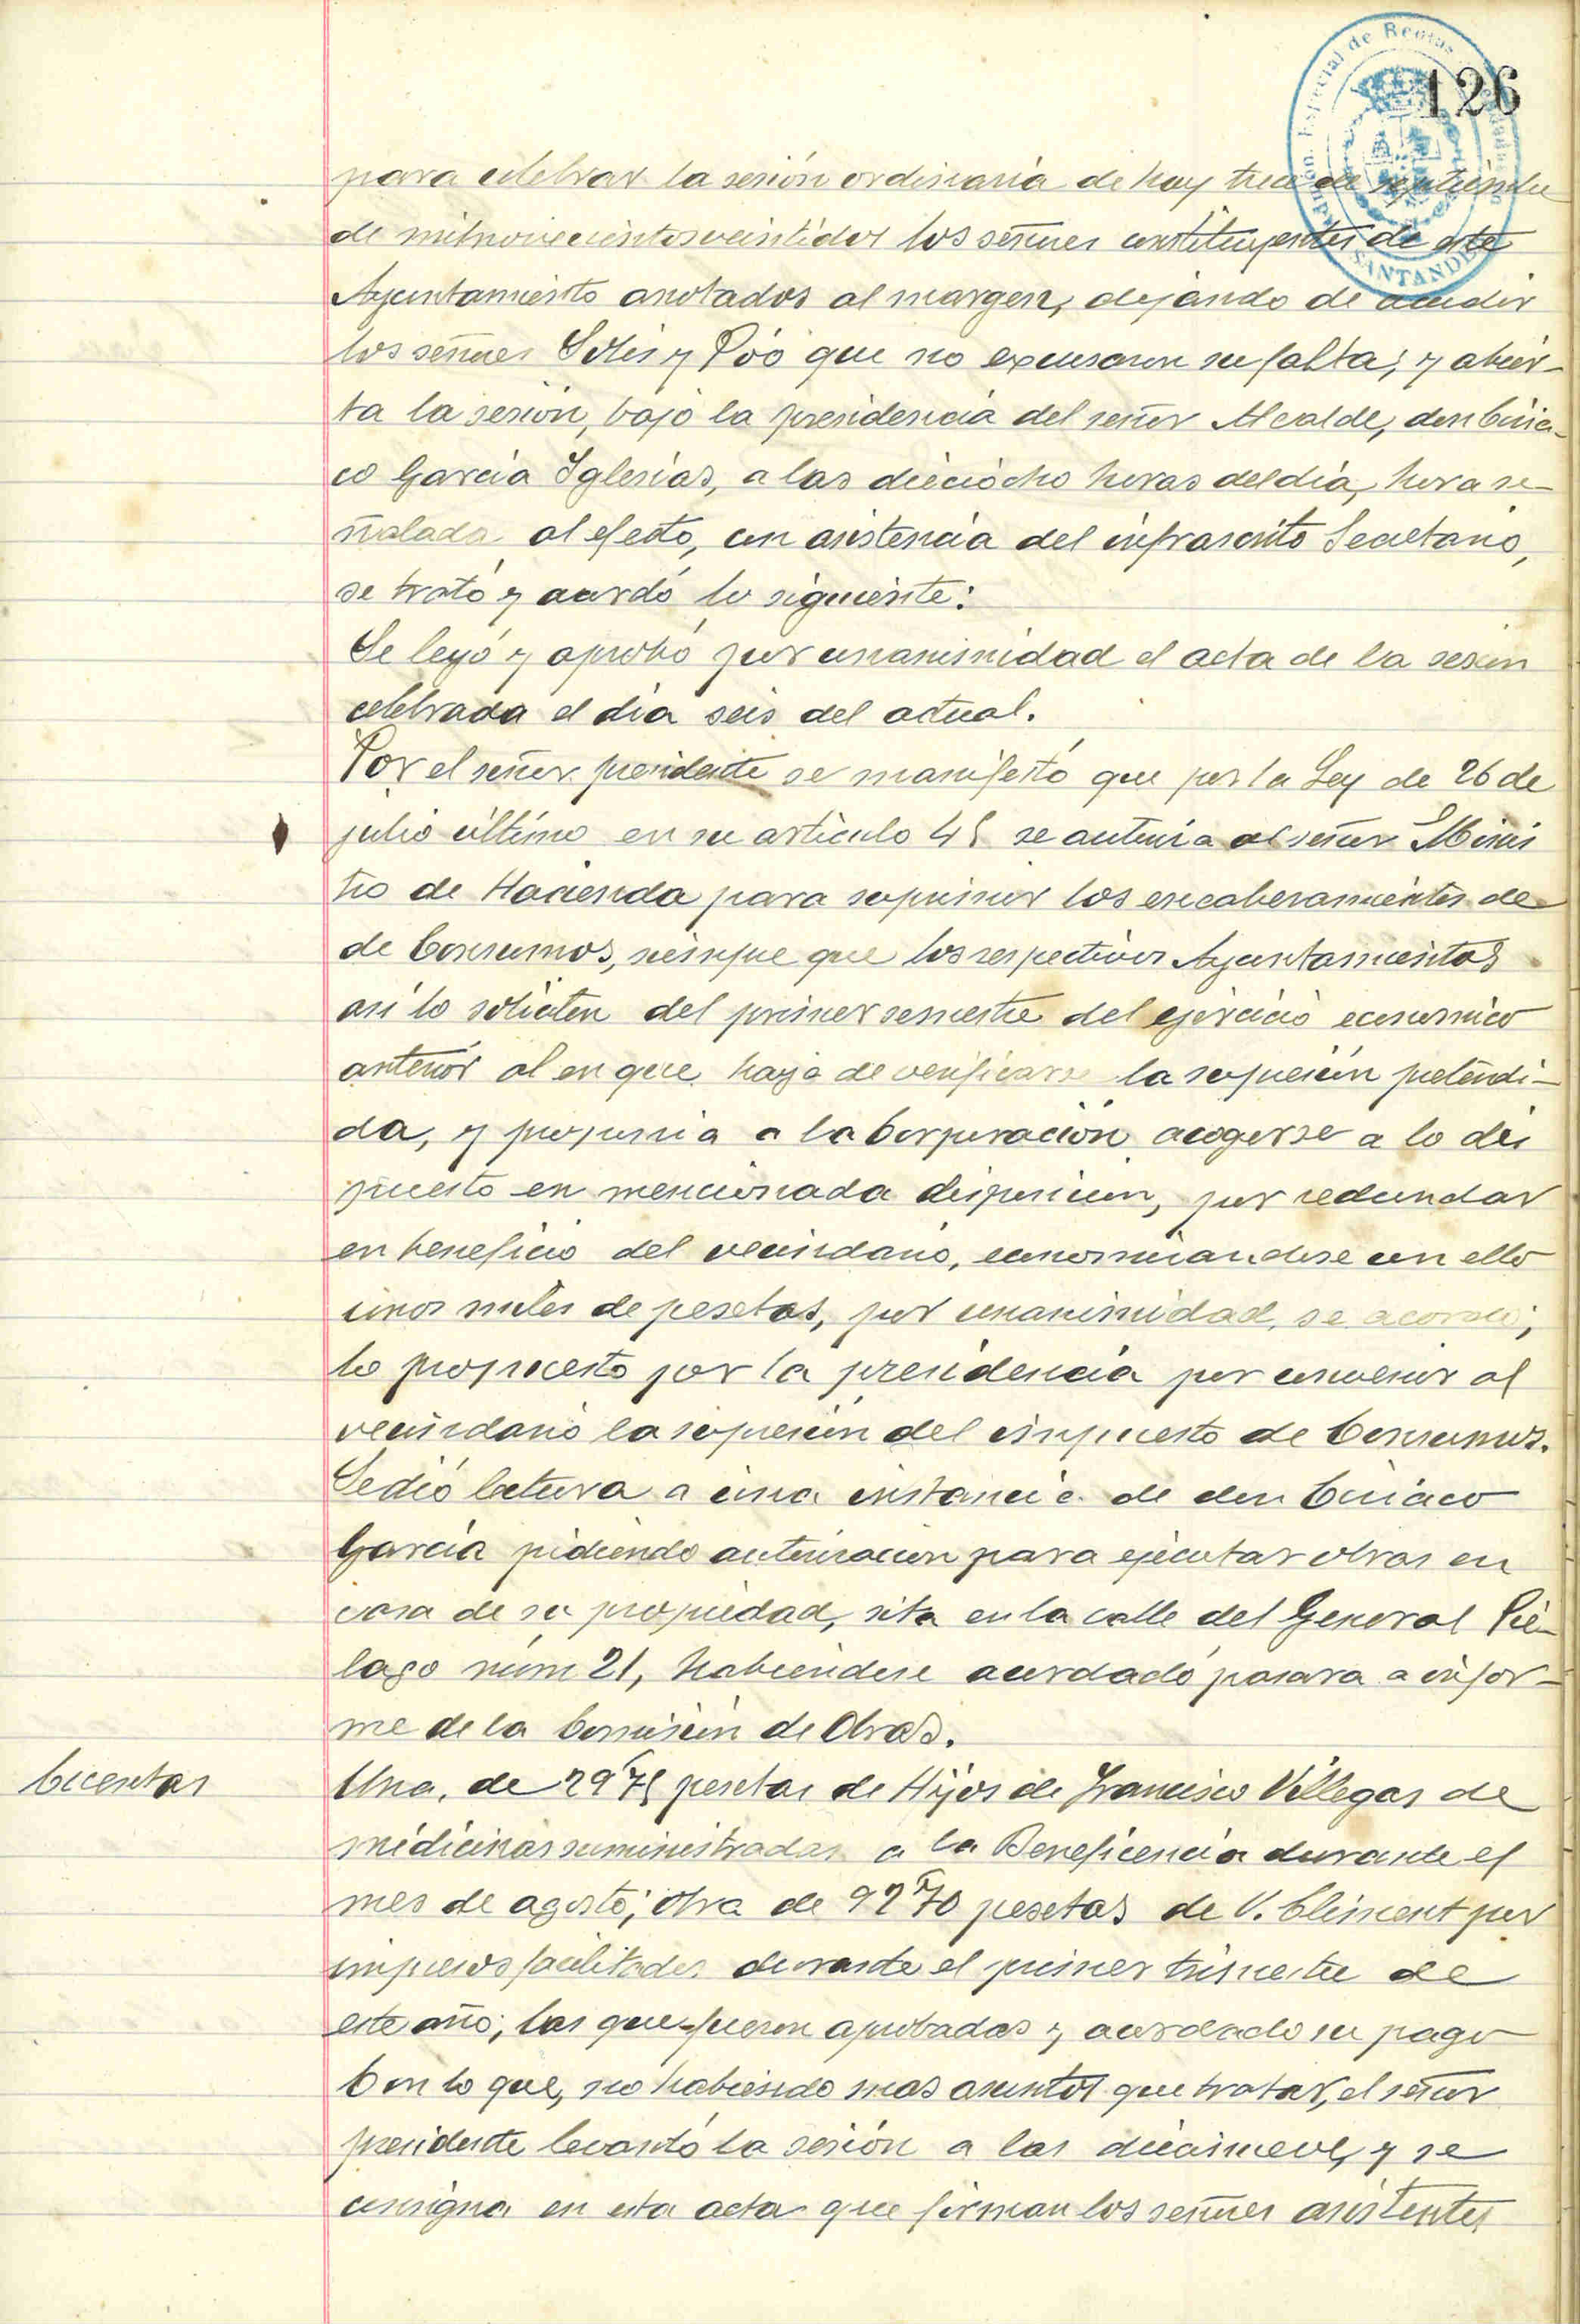 126
para celebrar la sesión ordinaria de hoy trece de septiembre
de mil novecientos veintidos los señores constituyentes de este
Ayuntamiento anotados al margen, dejando de acudir
los señores Solis y Póo que no excusaron su falta; y abier-
ta la sesión, bajo la presidencia del señor Alcalde, don Ciria-
co García Iglesias, a las dieciocho horas del día, hora se-
ñalada al efecto, con asistencia del infrascrito Secretario,
se trató y acordó lo siguiente:
Se leyó y aprobó por unanimidad el acta de la sesión
celebrada el día seis del actual.
Por el señor presidente se manifestó que por la Ley de 26 de
julio último en su artículo 45 se autoriza al señor Minis
tro de Hacienda para suprimir los encabezamientos de
de Consumos, siempre que los respectivos Ayuntamientos
así lo soliciten del primer semestre del ejercicio económico
anterior al en que haya de verificarse la supresión pretendi-
da, y proponía a la Corporación acogerse a lo dis
puesto en mencionada disposición, por redundar
en beneficio del vecindario, economizandose con ello
unos miles de pesetas, por unanimidad, se acordó;
lo propuesto por la presidencia por convenir al
vecindario la supresión del impuesto de Consumos.
Se dió lectura a una instancia de don Ciriaco
García pidiendo autorización para ejecutar obras en
casa de su propiedad, sita en la calle del General Pié-
lago núm 21, habiendose acordado pasara a infor-
me de la Comisión de Obras.
Cuentas
Una, de 29'75 pesetas de Hijos de Francisco Villegas de
medicinas suministradas a la Beneficencia durante el
mes de agosto; otra de 92'70 pesetas de V. Climent por
impresos facilitados durante el primer trimestre de
este año; las que fueron aprobadas y acordado su pago
Con lo que, no habiendo mas asuntos que tratar, el señor
presidente levantó la sesión a las diecinueve, y se
consigna en esta acta que firman los señores asistentes